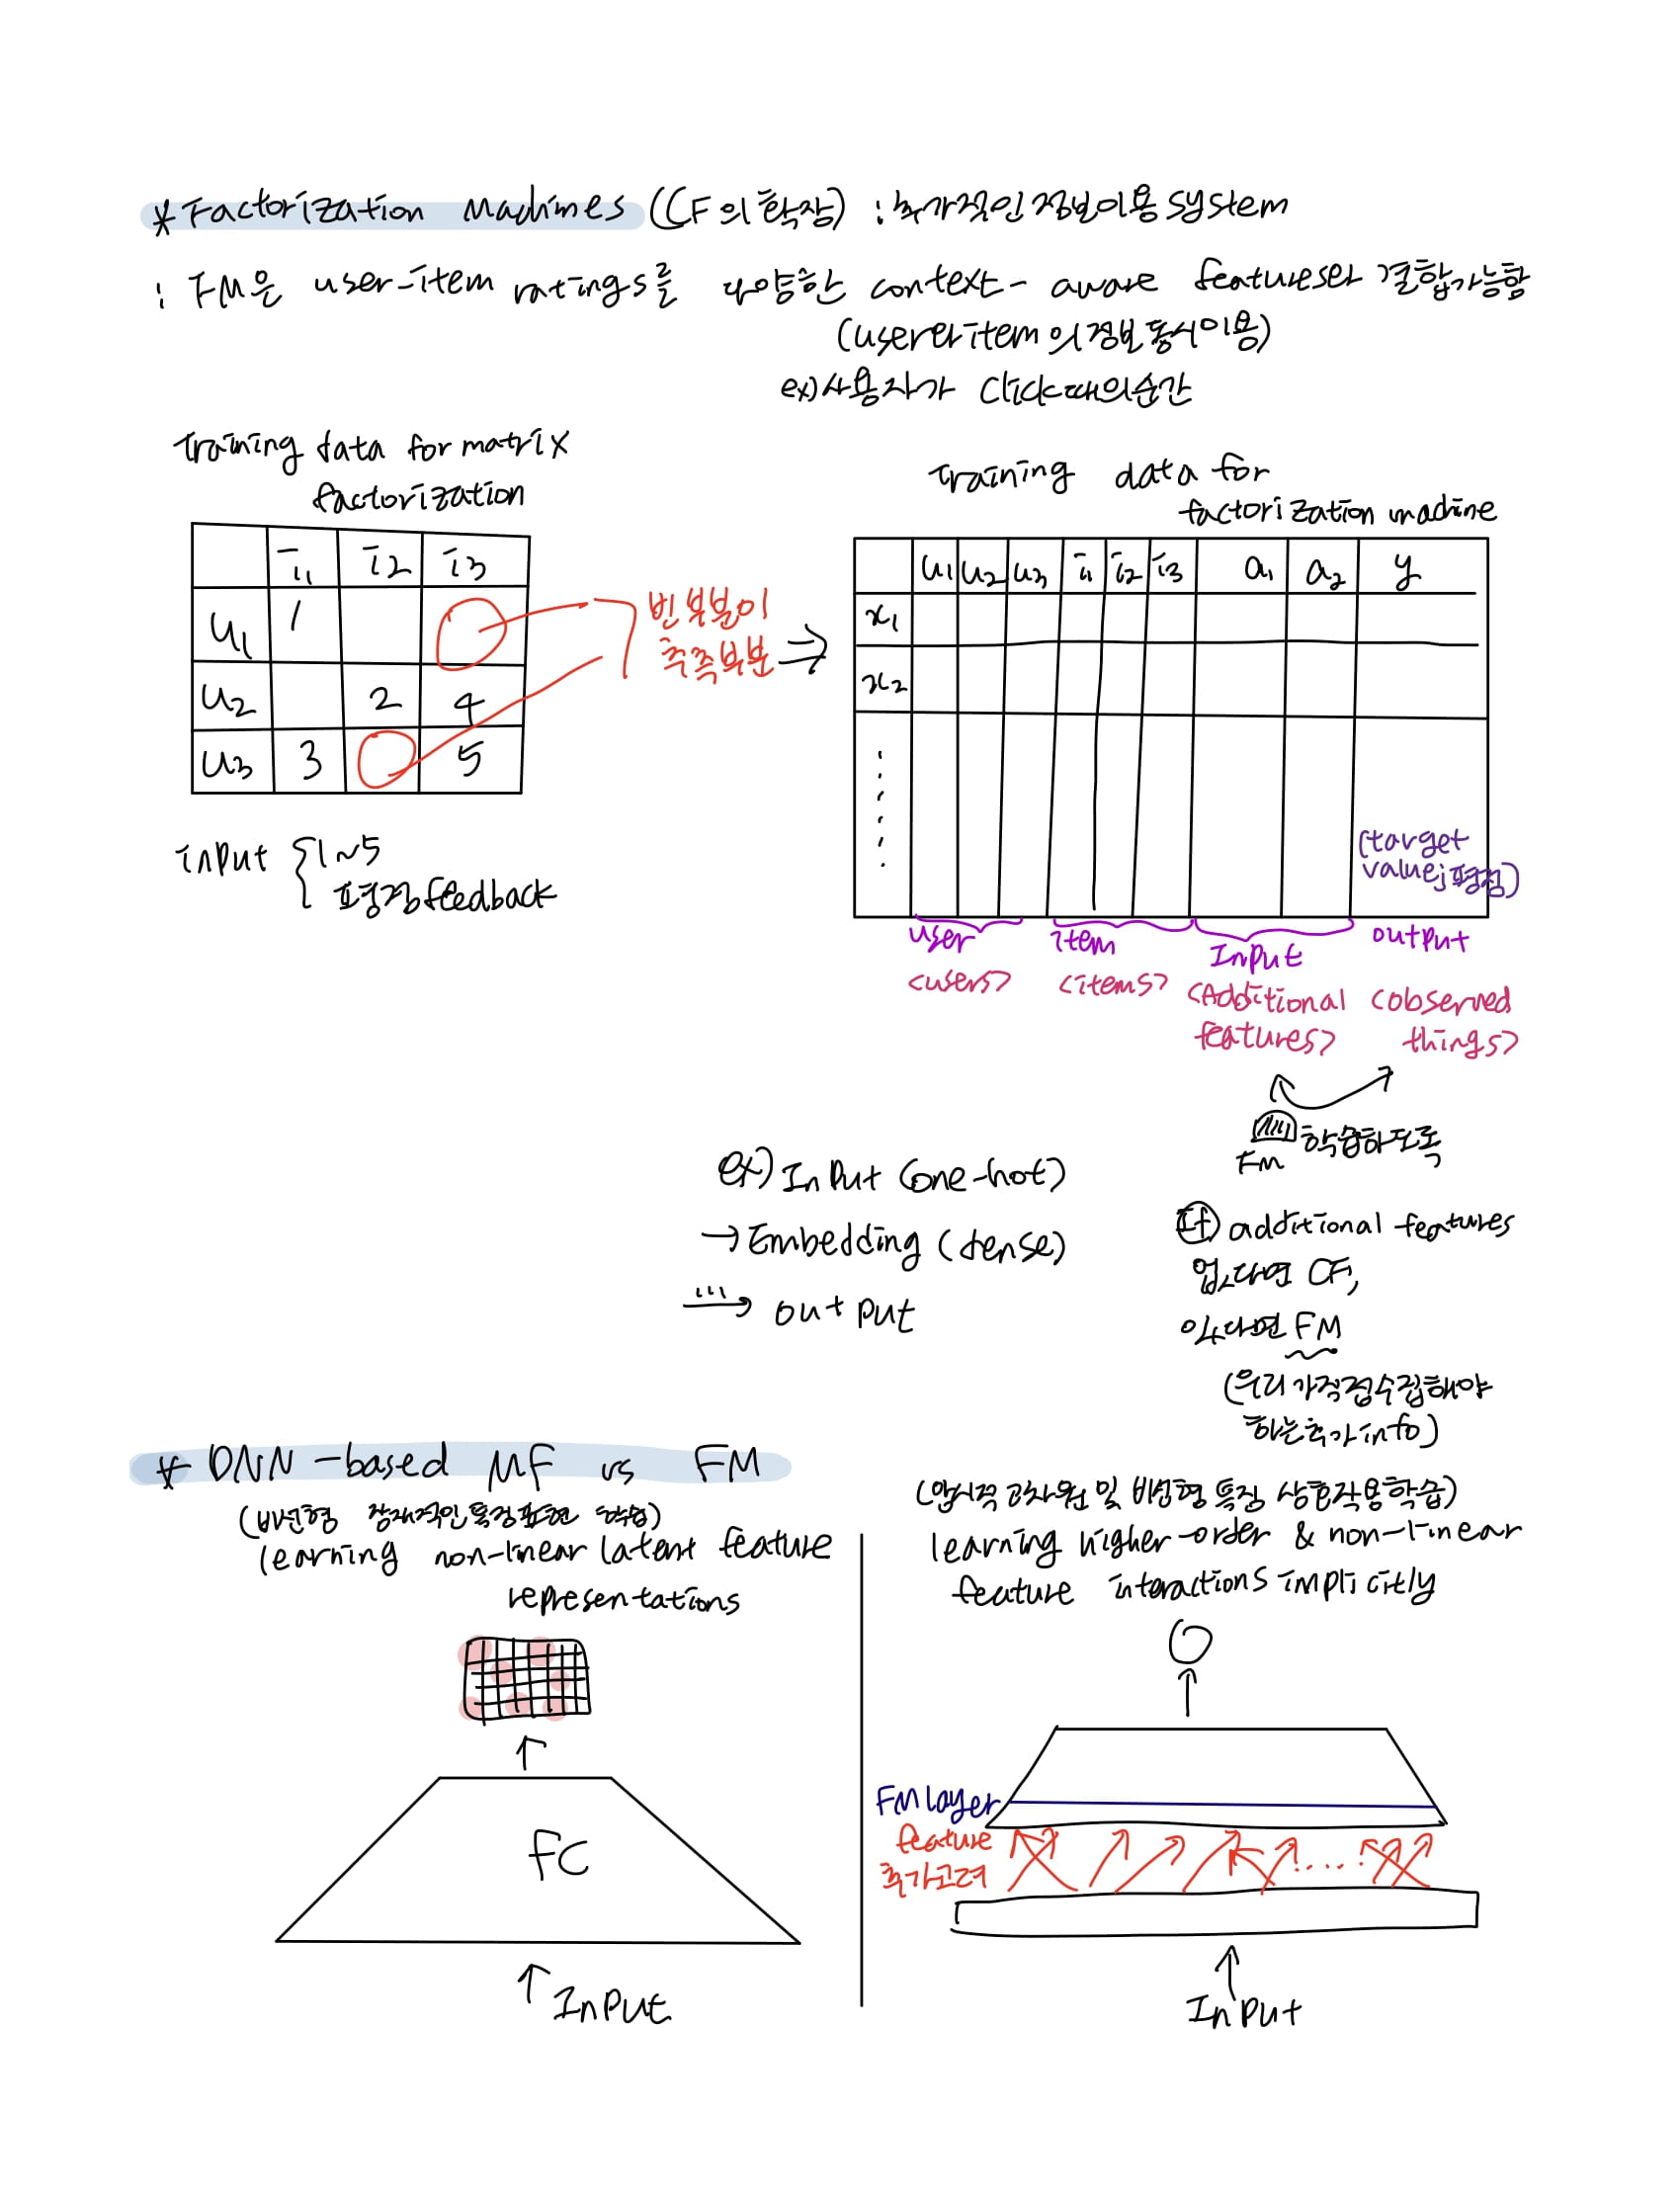 * Factorization Machines (CF의 확장) : 추가적인 정보이용 system
: FM은 user-item ratings를 다양한 context-aware features와 결합가능함
(user와 item의 정보 동시이용)
ex) 사용자가 click때의 순간
Training data for matrix
factorization
i1 i2 i3
u1 1
u2 2 4
u3 3 5
빈 부분이
추측부분 ⇒
input { 1~5
평점 feedback
Training data for
factorization machine
u1 u2 u3 i1 i2 i3 a1 a2 y
x1
x2
(target
value; 평점)
user item Input output
<users> <items> <Additional
features> <observed
things>
FM 학습하도록
ex) Input (one-hot)
→ Embedding (dense)
... → output
If) additional features
없다면 CF,
있다면 FM
(우리가 직접 수집해야
하는 추가 info)
* DNN-based MF vs FM
(비선형 잠재적인 특징표현 학습)
learning non-linear latent feature
representations
FC
↑ Input
(암시적 고차원 및 비선형 특징 상호작용학습)
learning higher-order & non-linear
feature interactions implicitly
FM layer
feature
추가고려
Input